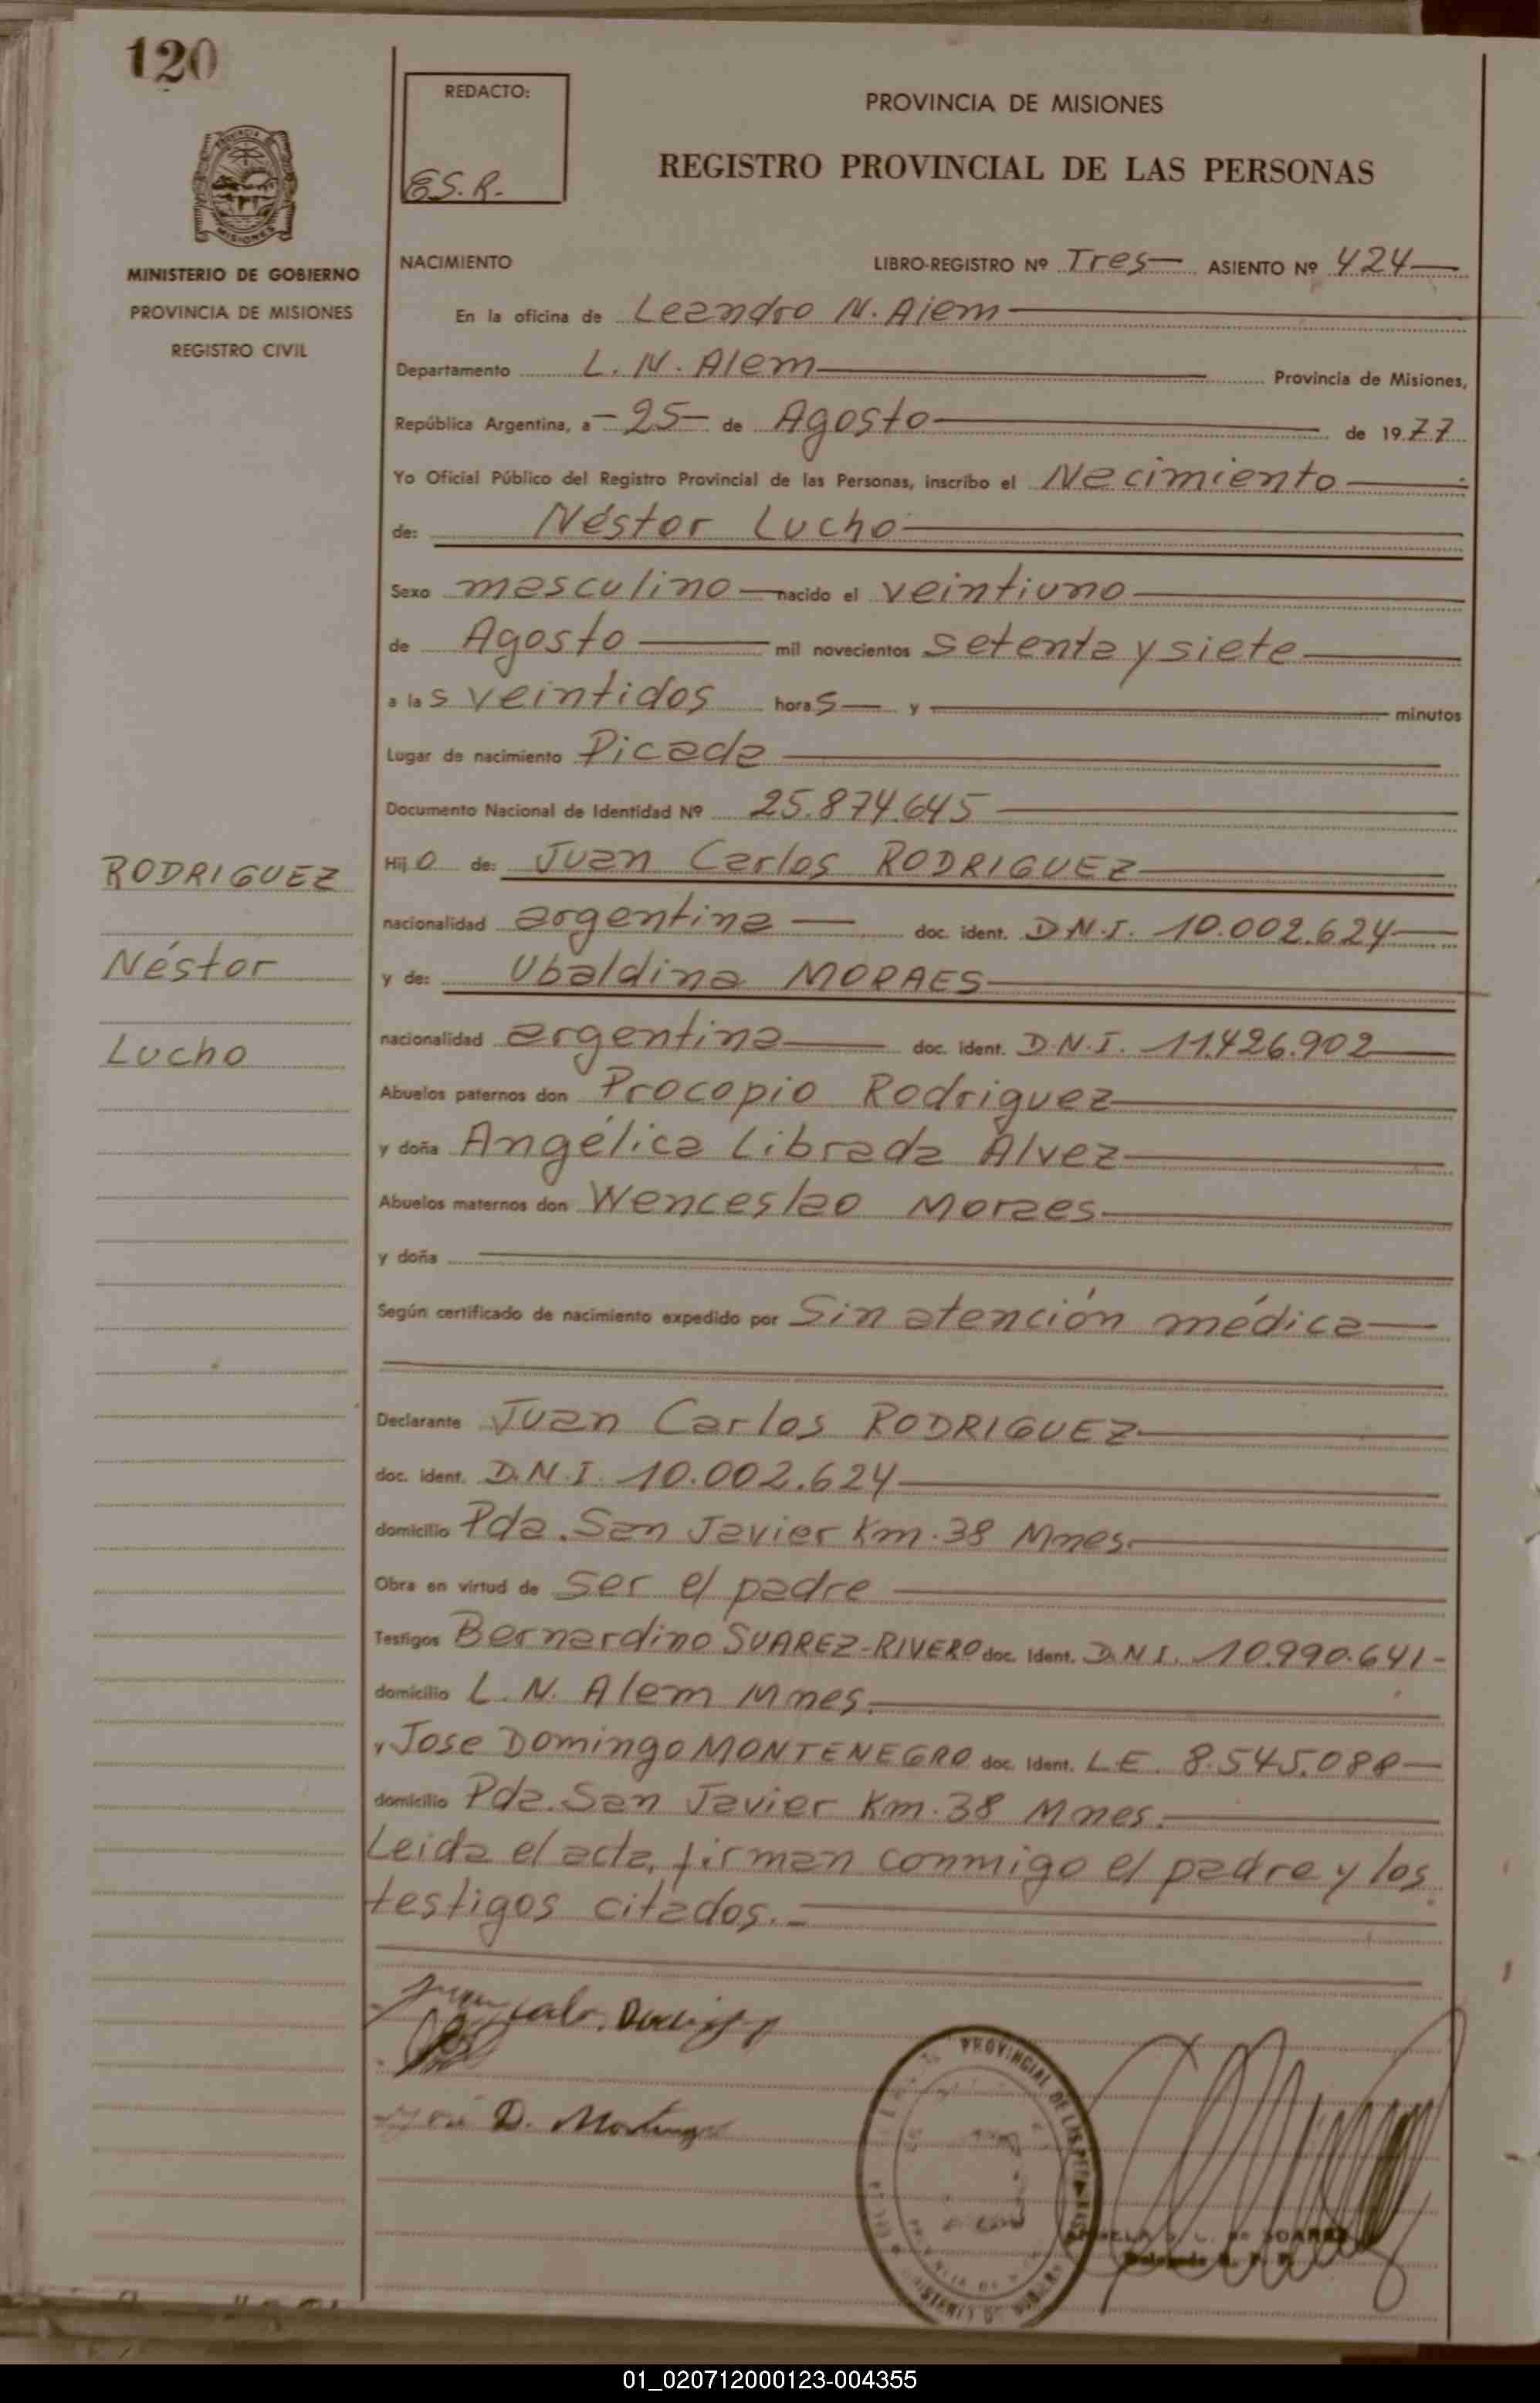 120
REDACTO:
E.S.R.
PROVINCIA DE MISIONES
REGISTRO PROVINCIAL DE LAS PERSONAS
MINISTERIO DE GOBIERNO
PROVINCIA DE MISIONES
REGISTRO CIVIL
NACIMIENTO LIBRO-REGISTRO Nº Tres ASIENTO Nº 424
En la oficina de Leandro N. Alem
Departamento L. N. Alem Provincia de Misiones,
República Argentina, a -25- de Agosto de 1977
Yo Oficial Público del Registro Provincial de las Personas, inscribo el Nacimiento
de: Néstor Lucho
Sexo masculino nacido el veintiuno
de Agosto mil novecientos setenta y siete
a las veintidos horas y minutos
Lugar de nacimiento Picada
Documento Nacional de Identidad Nº 25.874.645
RODRIGUEZ
Néstor
Lucho
Hijo de: Juan Carlos RODRIGUEZ
nacionalidad argentina doc. ident. D.N.I. 10.002.624
y de: Ubaldina MORAES
nacionalidad argentina doc. ident. D.N.I. 11.426.902
Abuelos paternos don Procopio Rodriguez
y doña Angélica Librada Alvez
Abuelos maternos don Wenceslao Moraes
y doña
Según certificado de nacimiento expedido por Sin atención médica
Declarante Juan Carlos RODRIGUEZ
doc. ident. D.N.I. 10.002.624
domicilio Pda. San Javier Km. 38 Mnes.
Obra en virtud de ser el padre
Testigos Bernardino SUAREZ-RIVERO doc. ident. D.N.I. 10.990.641-
domicilio L. N. Alem Mnes.
y Jose Domingo MONTENEGRO doc. ident. L.E. 8.545.088
domicilio Pda. San Javier Km. 38 Mnes.
Leida el acta, firman conmigo el padre y los
testigos citados.-
D.
PROVINCIAL DE LAS PERSONAS
01_020712000123-004355